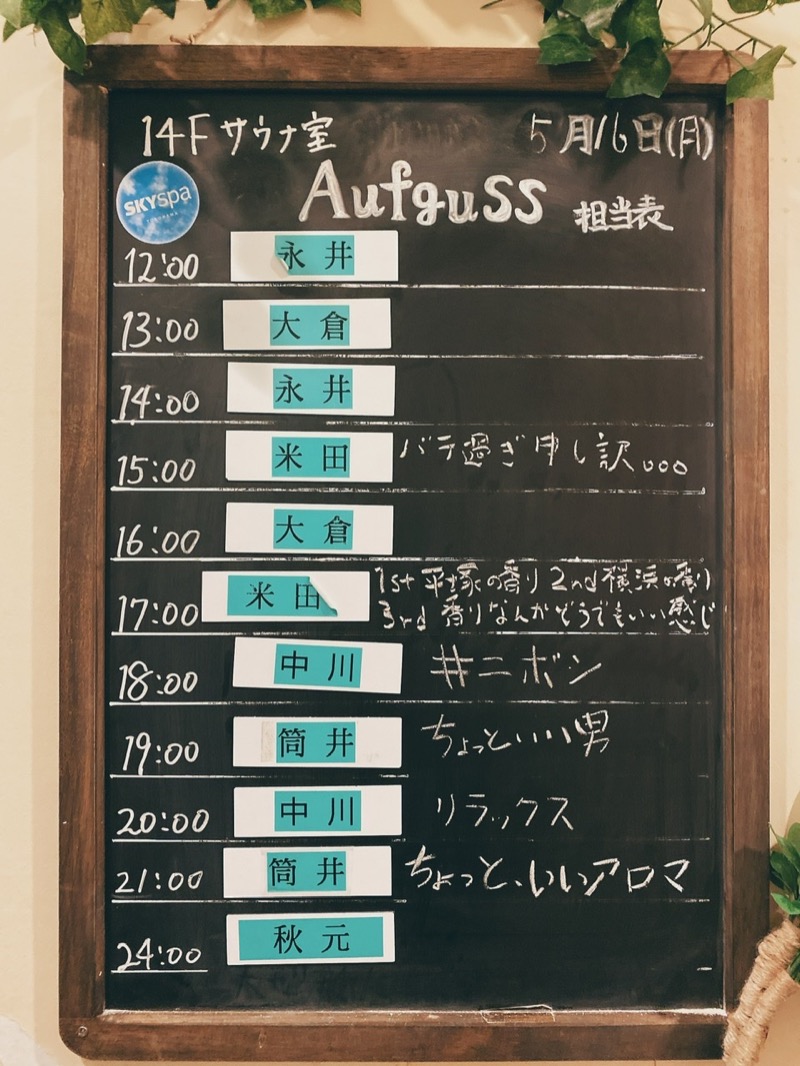 14F サウナ室 5月16日(月)
SKYspa
YOKOHAMA
Aufguss 担当表
12:00 永井
13:00 大倉
14:00 永井
15:00 米田 バテ過ぎ申し訳。。。
16:00 大倉
17:00 米田 1st 平塚の香り 2nd 横浜の香り
3rd 香りなんかどうでもいい感じ
18:00 中川 #ニボシ
19:00 筒井 ちょっといい男
20:00 中川 リラックス
21:00 筒井 ちょっと、いいアロマ
24:00 秋元